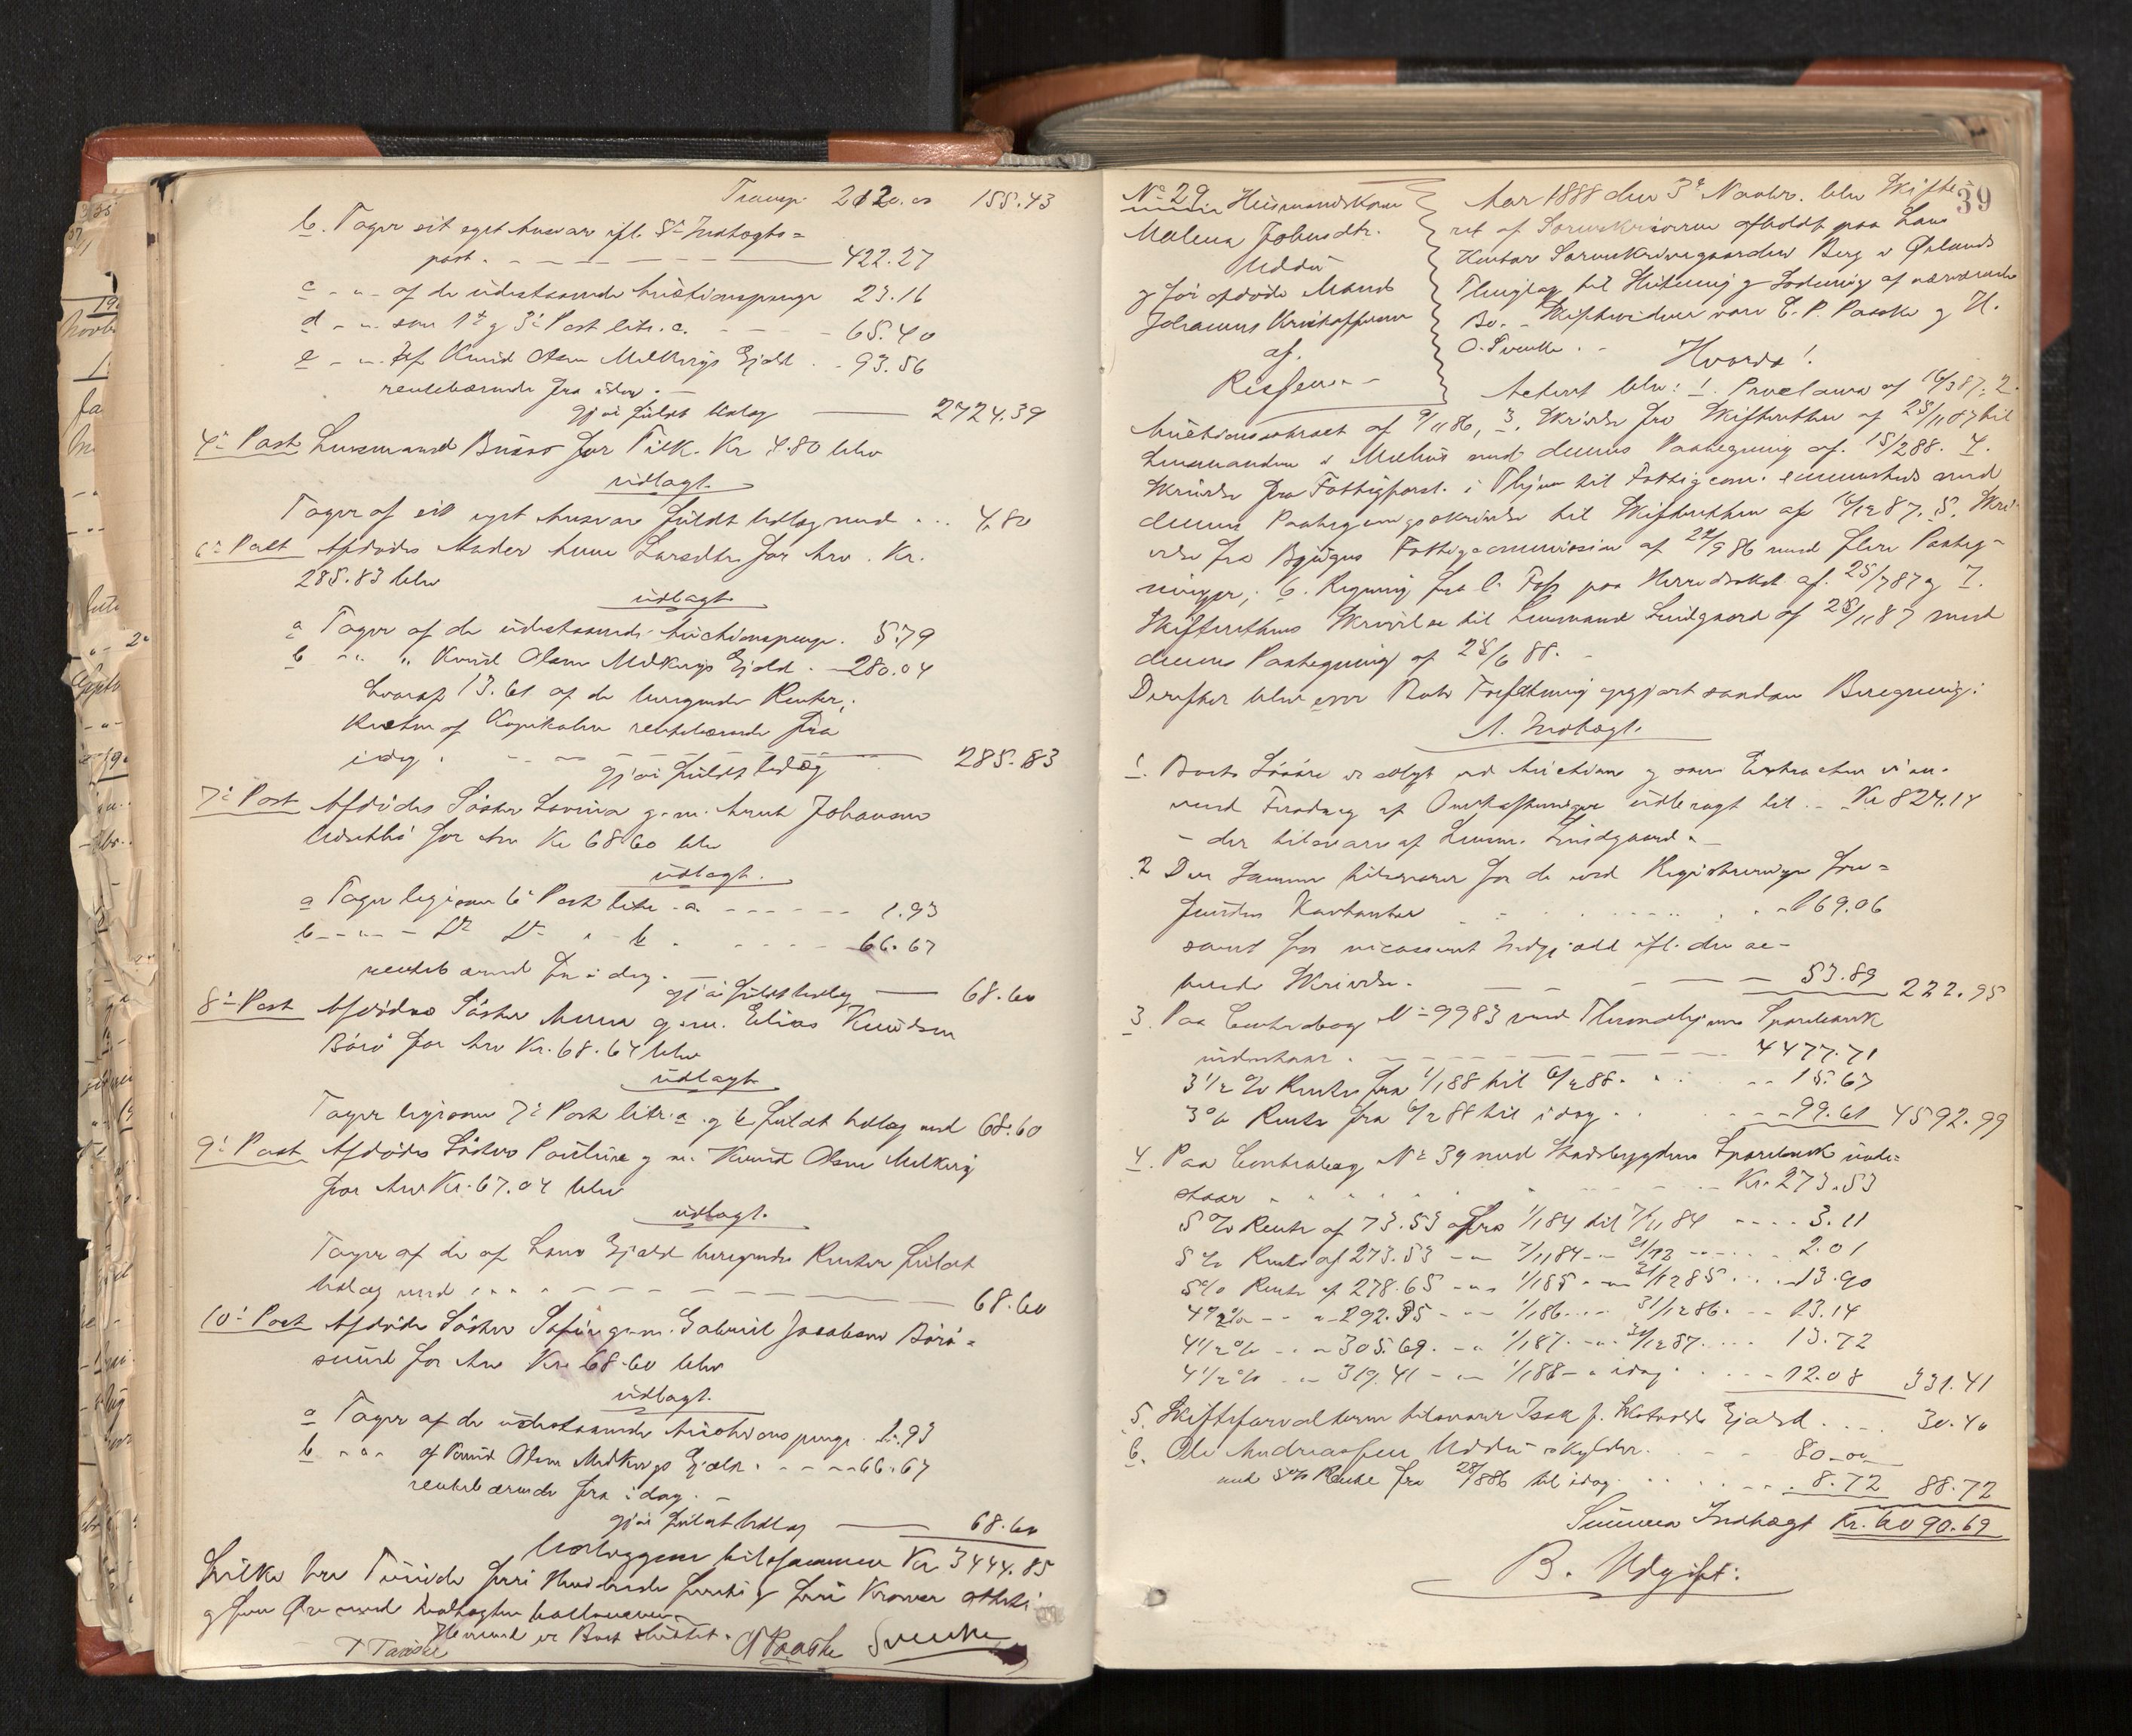 Transp. 2120.00 155.43
b. Tager sit eget husvær ifl. 8de Indtægts=
post. 422.27
c - " - af de udestaaende Auctionspenge 23.16
d - " - som 1ste og 3die Post litr. c. 65.40
e - " - af Knud Olsen Melkvigs Gjæld . - 93.56
rentebærende fra idag. -
gjør fuldt Udlæg 2724.39
4de Post Lensmand for Tilk. Kr 4.80 blev
udlagt.
Tager af sit eget husvær fuldt Udlæg med ... 4.80
6te Post Afdødes Moder Anne Larsdtr. for Arv . Kr.
285.83 blev
udlagt
a Tager af de udestaaende Auctionspenge. 5.79
b " " Knud Olsen Melkvigs Gjæld . 280.04
hvoraf 13.61 af de beregnede Renter,
Resten af Kapitalen rentebærende fra
idag . gjør fuldt Udlæg 285.83
7de Post Afdødes Søster Lovisa g. m. Arnt Johansen
for Arv Kr 68.60 blev
udlagt.
a Tager ligesom 6te Post litr. a. 1.93
b - " - Do Do " b . 66.67
rentebærende fra idag. - gjør fuldt Udlæg 68.60
8de Post Afdødes Søster Anna g. m. Elias Knudsen
for Arv Kr. 68.64 blev
udlagt
Tager ligesom 7de Post litr. a og b fuldt Udlæg med 68.60
9de Post Afdødes Søster Pauline g. m. Knud Olsen Melkvig
for Arv Kr. 67.04 blev
udlagt.
Tager af de af hans Gjæld beregnede Renter fuldt
Udlæg med 68.60
10de Post Afdødes Søster g. m. Gabriel Jacobsen
sund for Arv Kr. 68.60 blev
udlagt.
a Tager af de udestaaende Auctionspenge. 1.93
b " " af Knud Olsen Melkvigs Gjæld. 66.67
rentebærende fra idag. -
gjør fuldt Udlæg 68.60
Udlæggene tilsammen Kr 3444.85
hvilke tre Tusinde fire Hundrede firti og fire Kroner otteti
og fem Øre med Indtægten
Hermed er Boet sluttet.
Svenke
39
No 29 Huusmandskone
Malena Johnsdtr.
Uddu
og før afdøde Mand
Johannes Kristoffersen
af
Rissen. -
Aar 1888 den 3de Novbr. blev Skifte=
ret af Sorenskriveren afholdt paa hans
Kontor Sorenskrivergaarden Berg i Ørlands
Thinglag til Slutning og Lodning af nærværende
Bo. - Skiftevidner vare C. P. Paaske og H.
O. Svenke . - Hvorda!
Acteret blev: 1. Proclama af 16/3 87. 2.
Auctionsextract af 9/11 86, 3. Skrivelse fra Skifteretten af 28/11 87 til
Lensmanden i Melhus med dennes Paategning af 15/2 88. 4.
Skrivelse fra Fattigforst. i Thjem til Fattigcom. sammesteds med
dennes Paategningsskrivelse til Skifteretten af 16/12 87. 5. Skri=
velse fra Bjugns Fattigcommission af 22/9 86 med flere Paateg=
ninger, 6. Regning fra C. Foss paa af 25/7 87 og 7.
Skifterettens Skrivelse til Lensmand Lindgaard af 28/11 87 med
dennes Paategning af 28/6 88. -
Derefter blev over Boets Forfatning opgjort saadan Beregning:
A. Indtægt.
1. Boets Løsøre er solgt ved Auction og som Extracten viser
med Fradrag af Omkostningerne udbragt til .. Kr 824.14
- der tilsvares af Lensm. Lindgaard. -
2 Den Samme tilsvarer for de ved Registreringen fore=
fundne Kontanter 169.06
samt for incasseret Indgjæld ifl. den ac=
terede Skrivelse. 53.89 222.95
3. Paa Contrabog No 9983 med Throndhjems Sparebank
indestaar . 4477.71
3 1/2 % Rente fra 1/1 88 til 6/2 88. 15.67
3 % Rente fra 6/2 88 til idag . 99.61 4592.99
4. Paa Contrabog No 39 med Stadsbygdens Sparebank inde=
staar Kr. 273.53
5 % Rente af 73.53 fra 1/1 84 til 7/11 84 3.11
5 % Rente af 273.53 - " 7/11 84 - " 31/12 2.01
5 % Rente af 278.65 - " 1/1 85 - " 31/12 85 13.90
4 1/2 % - " - 292.55 - " 1/1 86 - " 31/12 86. 13.14
4 1/2 % - " - 305.69. - " 1/1 87. - " 31/12 87. 13.72
4 1/2 % - " 319.41 - " - 1/1 88 - " idag. 12.08 331.41
5. Skifteforvalteren tilsvarer Isak J. Gjæld 30.40
6. Ole Andreassen Uddu skylder. 80.00
med 5 % Rente fra 28/8 86 til idag 8.72 88.72
Summa Indtægt Kr. 6090.69
B. Udgift: